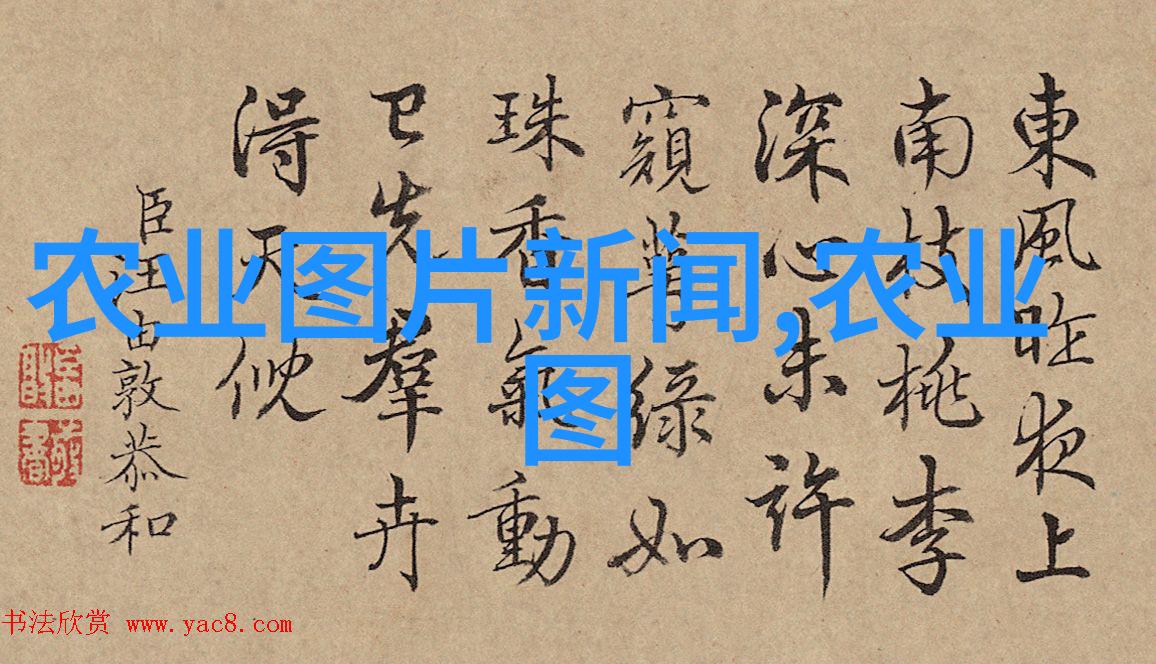 東風昨夜上
南枝桃李
深心未許
窺萼綠如
珠香氣動
已先羣卉
得天倪
臣汪由敦恭和
农业图片新闻,农业
图
书法欣赏 www.yac8.com